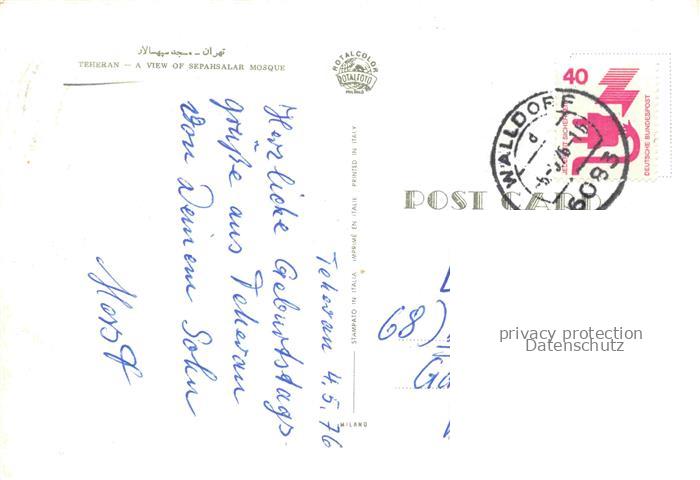 تهران - مسجد سپهسالار
TEHERAN - A VIEW OF SEPAHSALAR MOSQUE
ROTALCOLOR
ROTALFOTO
MILANO
Teheran 4.5.76
Herzliche Geburtstags-
grüße aus Teheran
von Deinem Sohn
Horst
STAMPATO IN ITALIA IMPRIMÉ EN ITALIE PRINTED IN ITALY
MILANO
POST CARD
40
JEDERZEIT SICHERHEIT
DEUTSCHE BUNDESPOST
WALLDORF
6083
68)
privacy protection
Datenschutz